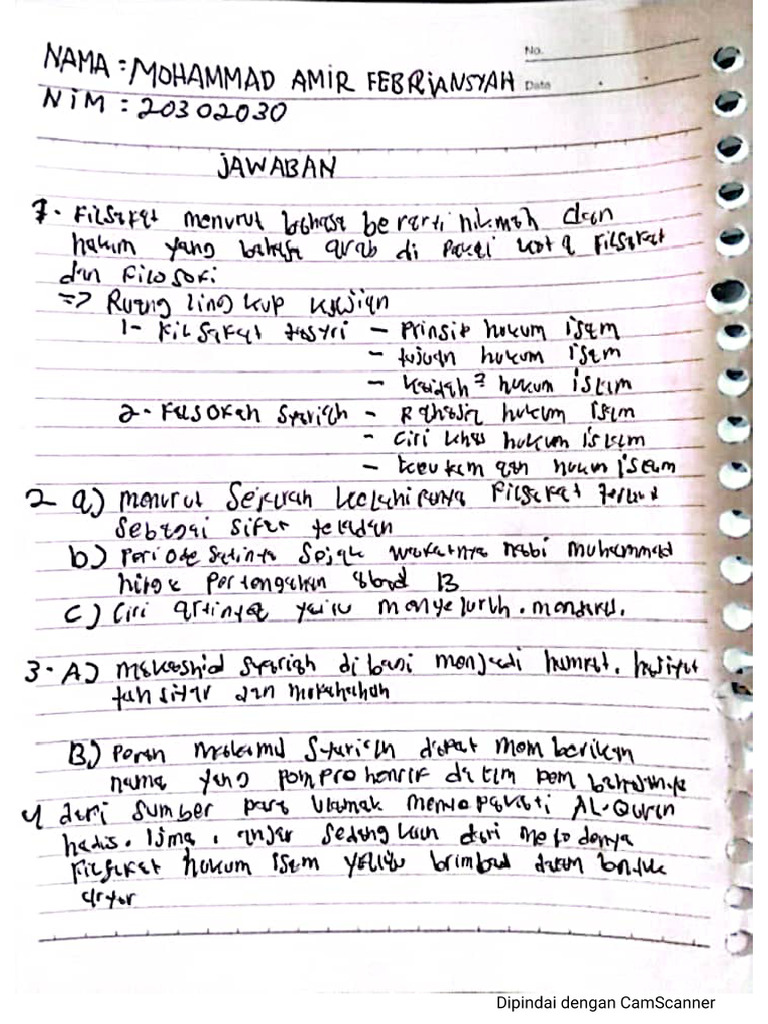 No.
Date
NAMA : MOHAMMAD AMIR FEBRIANSYAH
NIM : 20302030
JAWABAN
1. Filsafat menurut bahasa berarti hikmah dan
hakim yang bahasa arab di pakai kota Filsafat
dan Filosofi
=> Ruang lingkup kajian
1- Filsafat tasyri - Prinsip hukum islam
- tujuan hukum islam
- kaidah² hukum islam
2- Falsafah Syariah - Rahasia hukum islam
- Ciri khas hukum islam
- keutamaan hukum islam
2 a) menurut Sejarah kelahirannya Filsafat
Sebagai sifat teladan
b) Periode Sejak wafatnya nabi muhammad
hingga Pertengahan abad 13
c) Ciri artinya yaitu menyeluruh. mendasar.
3. A) makashid syariah di bagi menjadi
dan mukahahah
B.) Peran Syariah dapat memberikan
nama yang dalam pembahasannya
4 dari sumber para Ulamak menyepakati AL-Quran
hadis. Ijma, sedangkan dari metodenya
Filsafat hukum islam yaitu dalam